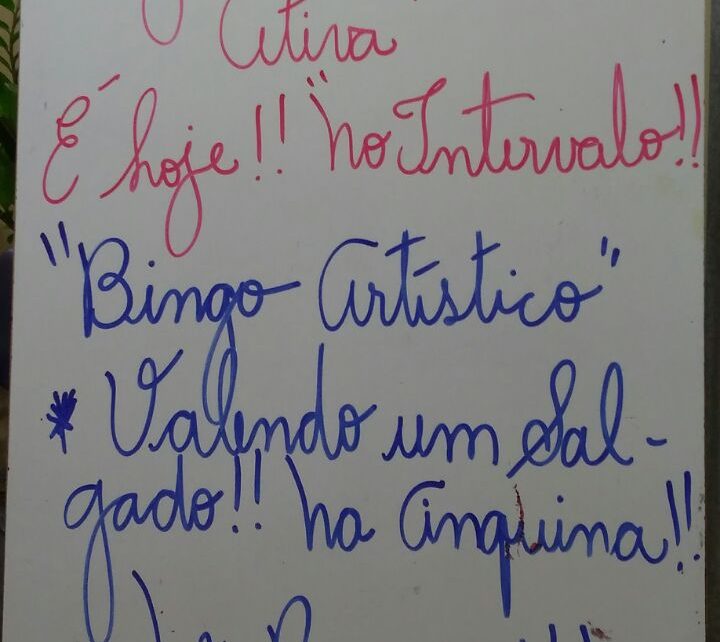 Ativa
É hoje!! "no Intervalo!!
"Bingo Artístico"
* Valendo um Sal-
gado!! na Cinquina!!